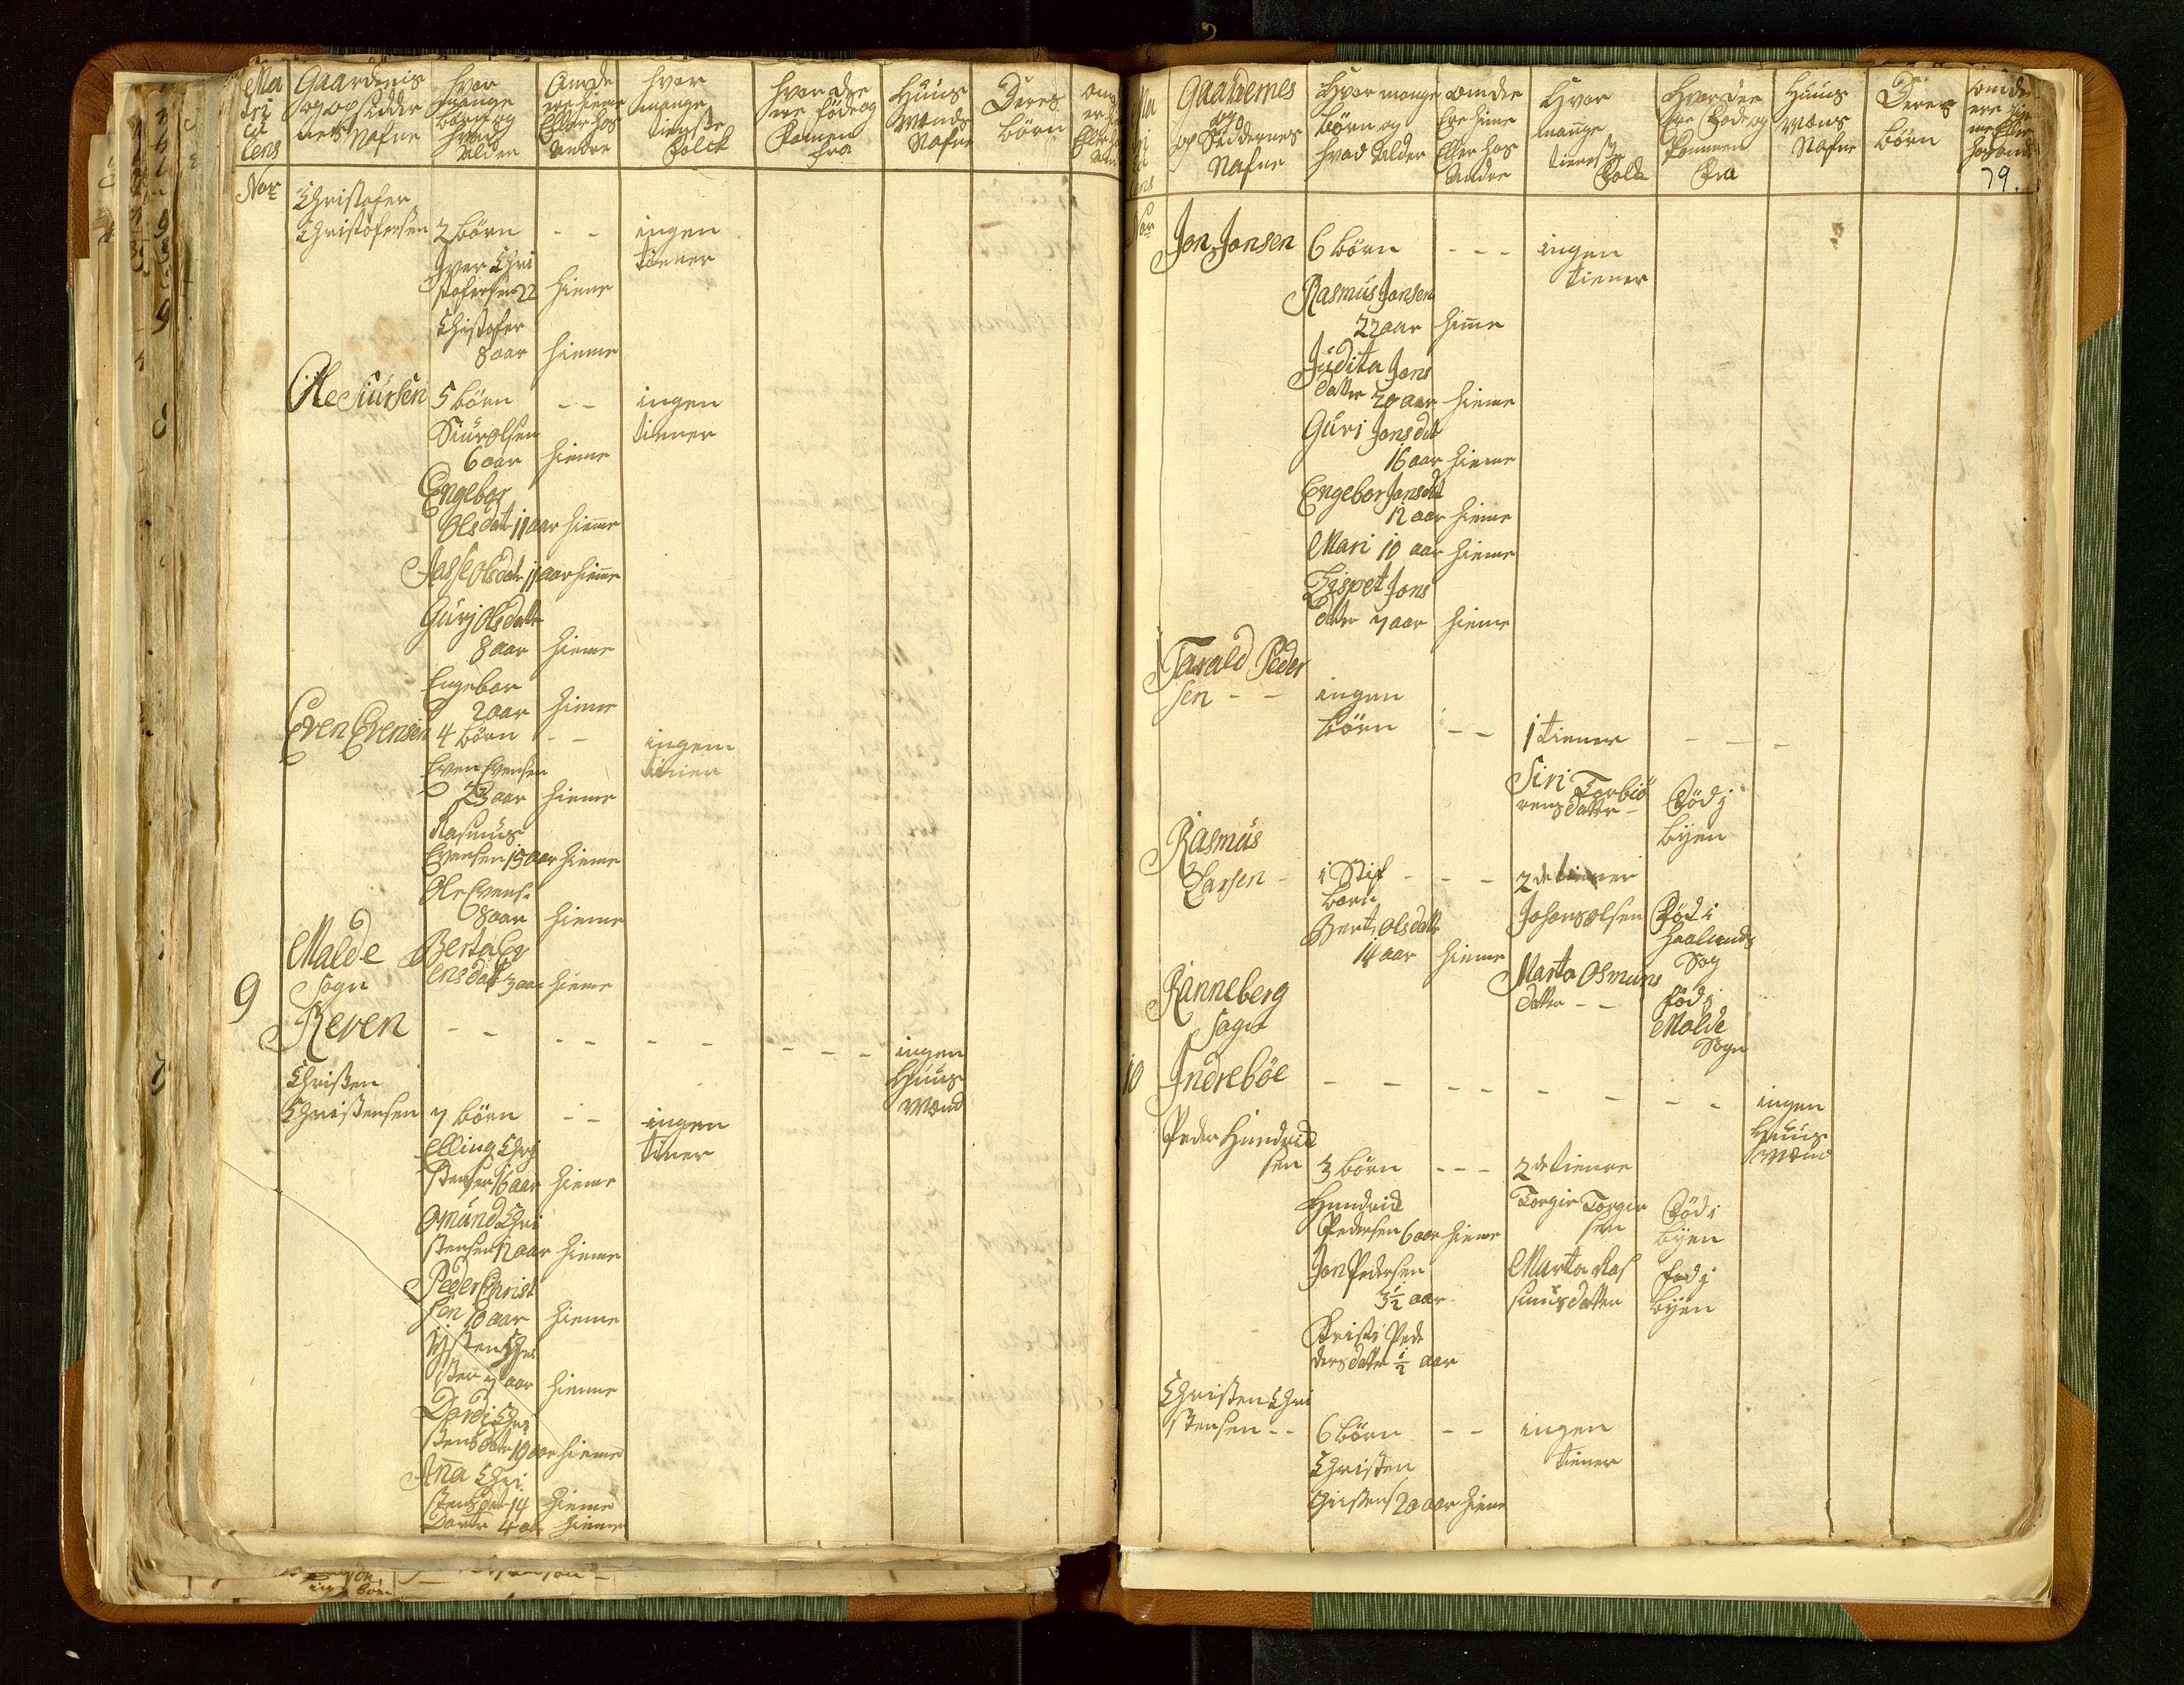 Ma
tri
cu
lens
Nor
Gaardenis
og opsidder
nets Nafne
hvor
mange
børn og
hvad
Alder
Om de
ere hieme
Eller hos
Andre
hvor
mange
tieneste
folck
hvor de
ere fød og
komen
fra
Huus
Mænds
Nafne
Deres
børn
Christofer
Christofersen 2 børn - - ingen
tiener
Iver Chri
stofersen 22 hieme
Christofer
8 aar hieme
Ole Siursen 5 børn - - ingen
tiener
Siur olsen
6 aar hieme
Engebor
Olsdatr 11 aar hieme
Aasse olsdatr 11 aar hieme
Gurj olsdatter
8 aar hieme
Engebor
2 aar hieme
Even Evensen 4 børn - - ingen
tiener
Even Evensen
23 aar hieme
Rasmus
Evensen 15 aar hieme
Ole Evens.
8 aar hieme
Malde
Sogn
Berta Ev
ensdat 3 aar hieme
9 Reven - - - - - - - - - ingen
Huus
Mænd
Christen
Christensen 7 børn - - ingen
tiener
Elling Chri
stensen 16 aar hieme
Omund Chri
stensen 12 aar hieme
Peder Christ
sen 10 aar hieme
Østen Chri
sten 7 aar hieme
Dordi Chri
stensdatr 19 aar hieme
Anna Chri
stensdat 14 hieme
Dortr 4 aar hieme
Ma
tri
cu
lens
Nor
Gaardernes
og
opSiddernes
Nafne
Hvor mange
børn og
hvad Alder
om die
Ere hieme
Eller hos
Andre
Hvor
mange
tieneste
Folck
Hvor dee
Ere Fød og
kommen
Fra
Huus
Mæns
Nafne
Deres
børn
om die
ere hie
me Eller
hos andre
79.
Jon Jonsen 6 børn - - - ingen
tiener
Rasmus Jonsen
22 aar hieme
Judita Jons
datter 20 aar hieme
Guri Jonsdat
16 aar hieme
Engebor Jonsdat
12 aar hieme
Mari 10 aar hieme
Lispet Jons
dater 7 aar hieme
Tarald Peder
sen - - ingen
børn - - 1 tiener - - -
Siri Torbiö
rensdatter - Fød j
byen
Rasmus
Larsen - 1 Stif - - - 2de tiener
barn
Johans olsen Fød i
Haalands
Sog
Bert olsdatter
14 aar hieme
Marta Osmuns
datter - - fød j
Malde
Sogn
Ranneberg
Sogn
10 Indrebøe - - - - - - - - ingen
Huus
Mænd
Peder Hindrick
sen 3 børn - - - 2de tienere
Hendrick
Pedersen 6 aar hieme
Torgir Torgir
sen Fød i
byen
Jon Pedersen
3½ aar
Marta Ras
musdatter fød j
byen
Kristi Pede
dersdatter ½ aar
Christen Chri
stensen - - 6 børn - - ingen
tiener
Christen
Christens 20 aar hieme